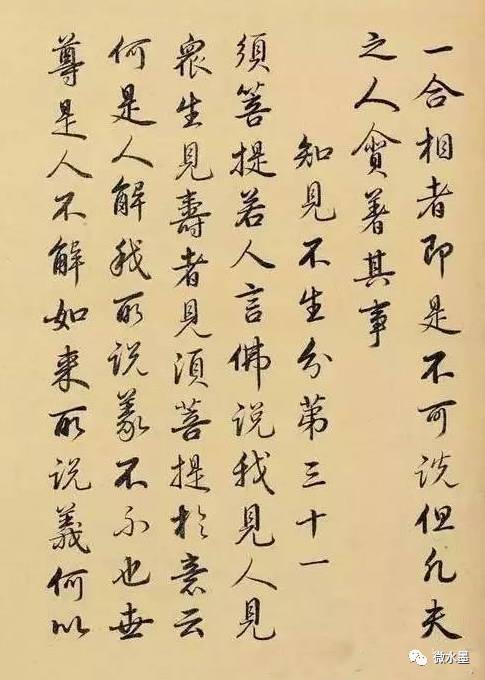 一合相者即是不可說但凡夫
之人貪著其事
知見不生分第三十一
須菩提若人言佛說我見人見
衆生見壽者見須菩提於意云
何是人解我所說義不不也世
尊是人不解如來所說義何以
微水墨